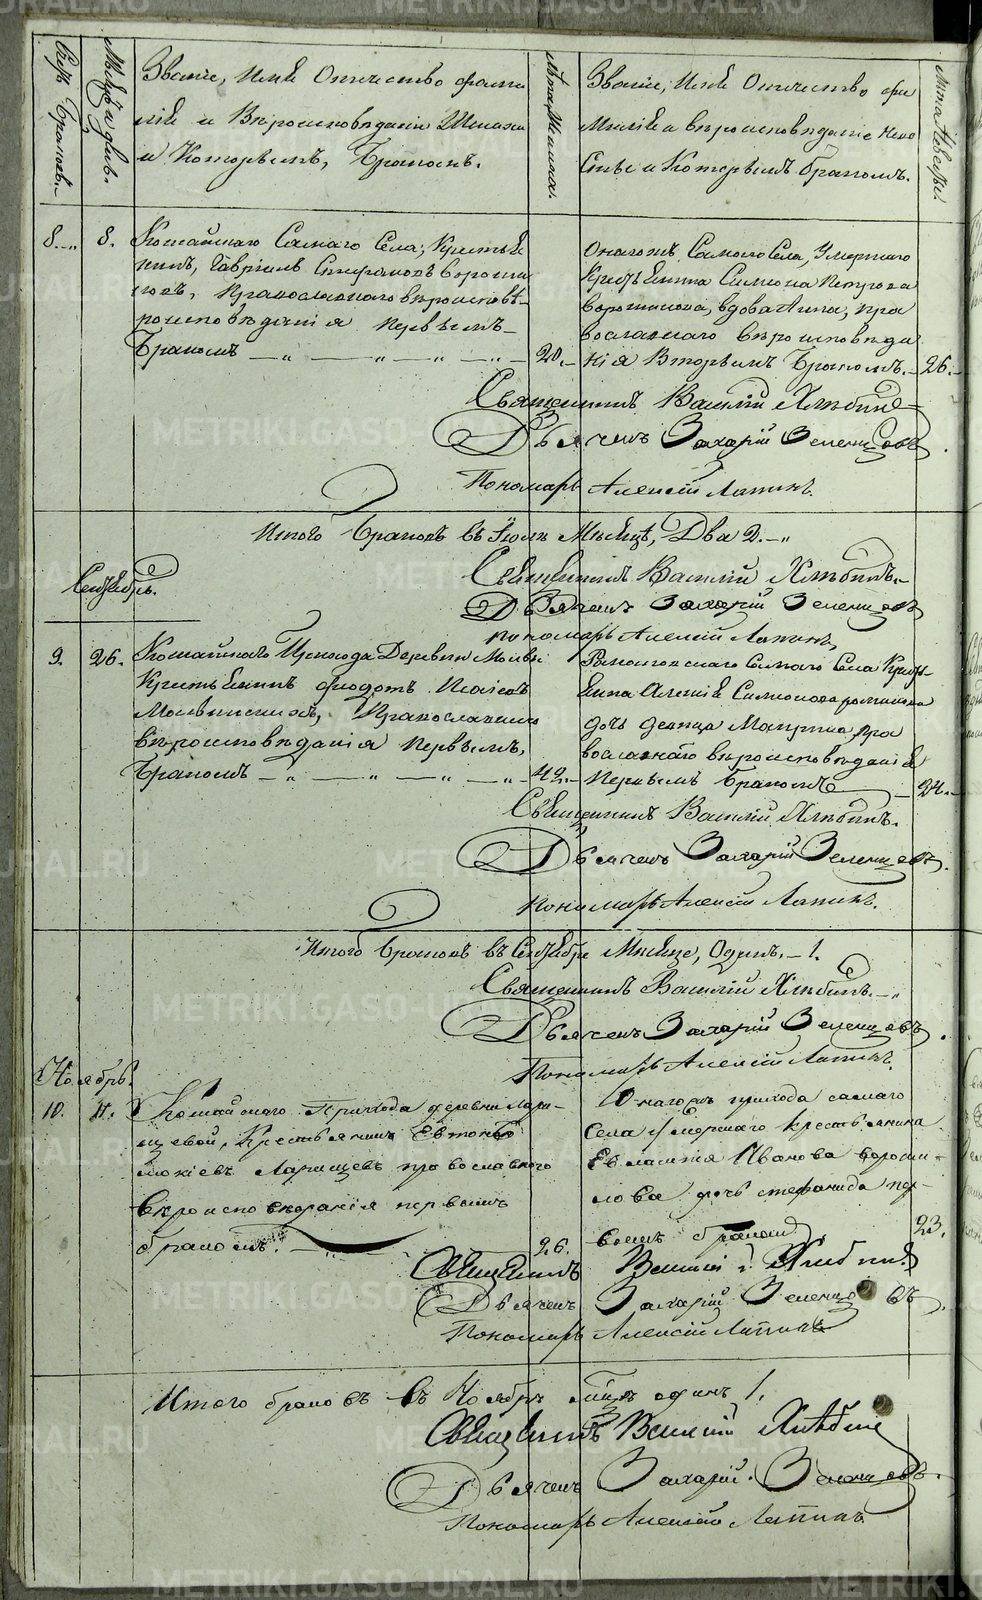 Счетъ Браковъ.
Мѣсяцъ и день.
Званіе, Имя Отчество фами
лія и Вѣроисповѣданіе Жениха
и Которымъ, Бракомъ.
Лѣта Жениха.
Званіе, Имя Отчество фа
милія и вѣроисповѣданіе Неве
сты и Которымъ бракомъ.
Лѣта Невесты.
8.
8.
Кошайскаго Самаго Села, Крестья
нинъ, Гавріилъ Стефановъ Вороши
ловъ, Православнаго вѣроисповѣ-
роисповѣданія первымъ
Бракомъ
20.
Онагожъ Самаго Села, Умершаго
Крестьянина Симиона Петрова
Ворошилова, вдова Анна, пра
вославнаго вѣроисповѣда
нія Вторымъ Бракомъ.
26.
Священникъ Василій Хлѣбинъ
Дьячекъ Захарій Зеленцовъ
Пономарь Алексій Лапинъ.
Итого Браковъ въ Іюлѣ Мѣсяцѣ, Два 2.
Священникъ Василій Хлѣбинъ.
Дьячекъ Захарій Зеленцовъ
Пономарь Алексій Лапинъ,
Сентябрь.
9.
26.
Кошайскаго Прихода Деревни
Крестьянинъ Федотъ
Православнаго
вѣроисповѣданія первымъ,
Бракомъ
42.
Самаго Села Кресть
янина Алексія Симионова
дочь девица Мавра, пра
вославнаго вѣроисповѣданія
Первымъ Бракомъ
24.
Священникъ Василій Хлѣбинъ.
Дьячекъ Захарій Зеленцовъ.
Пономарь Алексій Лапинъ.
Итого браковъ въ Сентябрѣ Мѣсяце, Одинъ. 1.
Священникъ Василій Хлѣбинъ.
Дьячекъ Захарій Зеленцовъ
Пономарь Алексій Лапинъ.
Ноябрь.
10.
11.
Кошайскаго Прихода деревни Лари-
щевой, Крестьянинъ
Мокіевъ Ларищевъ православнаго
вѣроисповѣданія первымъ
бракомъ.
26.
Онагожъ прихода самаго
Села умершаго Крестьянина
Евлампія Иванова вороши-
лова дочь стефанида пер-
вымъ бракомъ
23.
Священникъ Василій Хлѣбинъ
Дьячекъ Захарій Зеленцовъ
Пономарь Алексій Лапинъ
Итого браковъ въ Ноябрѣ мцѣ одинъ 1.
Священникъ Василій Хлѣбинъ
Дьячекъ Захарій Зеленцовъ.
Пономарь Алексій Лапинъ
METRIKI.GASO-URAL.RU